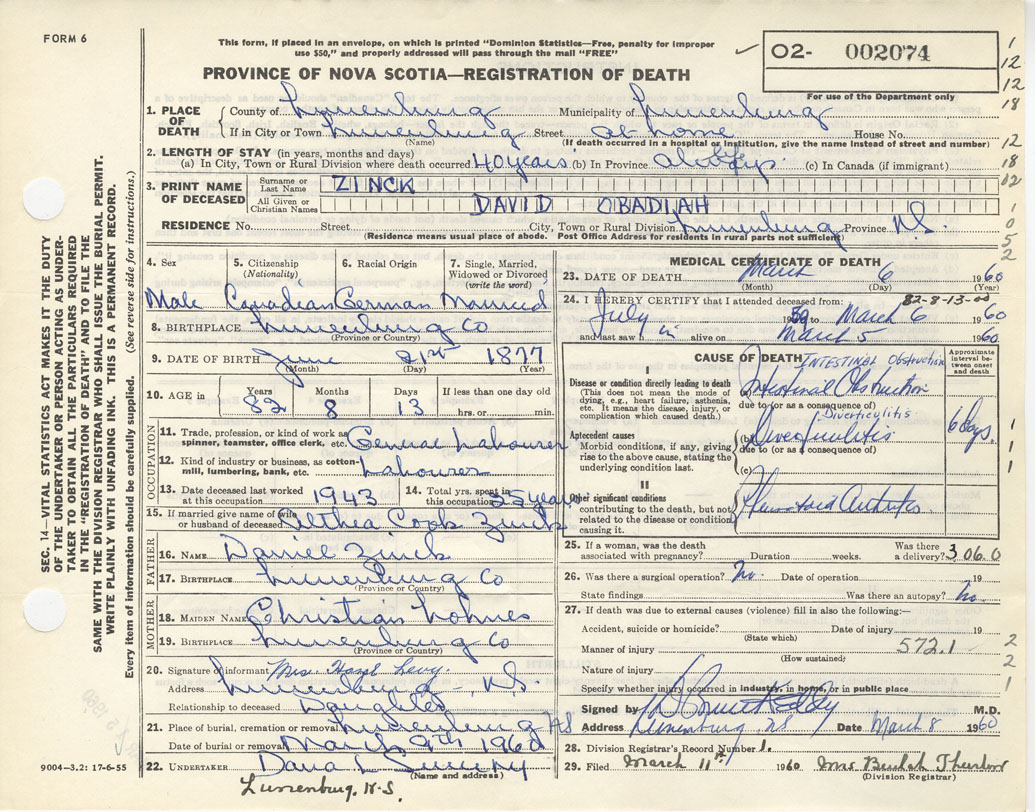 FORM 6
This form, if placed in an envelope, on which is printed "Dominion Statistics—Free, penalty for improper
use $50," and properly addressed will pass through the mail "FREE"
PROVINCE OF NOVA SCOTIA—REGISTRATION OF DEATH
✓ 02- 002074
For use of the Department only
1
12
12
18
12
18
02
1
0
5
2
SEC. 14—VITAL STATISTICS ACT MAKES IT THE DUTY
OF THE UNDERTAKER OR PERSON ACTING AS UNDER-
TAKER TO OBTAIN ALL THE PARTICULARS REQUIRED
IN THE "REGISTRATION OF DEATH" AND FILE THE
SAME WITH THE DIVISION REGISTRAR WHO SHALL ISSUE THE BURIAL PERMIT.
WRITE PLAINLY WITH UNFADING INK. THIS IS A PERMANENT RECORD.
Every item of information should be carefully supplied. (See reverse side for instructions.)
1. PLACE OF DEATH County of Lunenburg Municipality of Lunenburg
If in City or Town Lunenburg Street at home House No.
(Name) (If death occurred in a hospital or institution, give the name instead of street and number)
2. LENGTH OF STAY (in years, months and days)
(a) In City, Town or Rural Division where death occurred 40 years (b) In Province all life (c) In Canada (if immigrant)
3. PRINT NAME OF DECEASED Surname or Last Name ZINCK
All Given or Christian Names DAVID OBADIAH
RESIDENCE No. Street City, Town or Rural Division Lunenburg Province N.S.
(Residence means usual place of abode. Post Office Address for residents in rural parts not sufficient)
4. Sex 5. Citizenship (Nationality) 6. Racial Origin 7. Single, Married, Widowed or Divorced (write the word)
Male Canadian German Married
8. BIRTHPLACE Lunenburg Co
(Province or Country)
9. DATE OF BIRTH June 21st 1877
(Month) (Day) (Year)
10. AGE in Years 82 Months 8 Days 13 If less than one day
hrs. or min.
OCCUPATION
11. Trade, profession, or kind of work as spinner, teamster, office clerk, etc. General Labourer
12. Kind of industry or business, as cotton-mill, lumbering, bank, etc. Labourer
13. Date deceased last worked at this occupation 1943 14. Total yrs. spent in this occupation 25 years
15. If married give name of wife or husband of deceased Althea Cook Zinck
FATHER
16. NAME Daniel Zinck
17. BIRTHPLACE Lunenburg Co
(Province or Country)
MOTHER
18. MAIDEN NAME Christian Lohnes
19. BIRTHPLACE Lunenburg Co
(Province or Country)
20. Signature of informant Mrs. Hazel Levy
Address Lunenburg, N.S.
Relationship to deceased Daughter
21. Place of burial, cremation or removal Lunenburg NS
Date of burial or removal March 9th 1960
22. UNDERTAKER Dana L Sweeny
(Name and address)
Lunenburg, N.S.
9004-3.2: 17-6-55
MEDICAL CERTIFICATE OF DEATH
23. DATE OF DEATH March 6 1960
(Month) (Day) (Year)
82-8-13-00
24. I HEREBY CERTIFY that I attended deceased from:
July 1959 to March 6 1960
and last saw him alive on March 5 1960
CAUSE OF DEATH INTESTINAL OBSTRUCTION
Approximate interval between onset and death
I
Disease or condition directly leading to death
(This does not mean the mode of dying, e.g., heart failure, asthenia, etc. It means the disease, injury, or complication which caused death.)
(a) Intestinal Obstruction
due to (or as a consequence of)
Diverticulitis
Antecedent causes
Morbid conditions, if any, giving rise to the above cause, stating the underlying condition last.
(b) Diverticulitis 6 days
due to (or as a consequence of)
(c)
1
1
1
II
Other significant conditions
contributing to the death, but not related to the disease or condition causing it.
Rheumatoid Arthritis
25. If a woman, was the death associated with pregnancy? Duration weeks. Was there a delivery? 3 06.0
26. Was there a surgical operation? No. Date of operation 19
State findings Was there an autopsy? No.
27. If death was due to external causes (violence) fill in also the following:—
Accident, suicide or homicide? Date of injury 19
(State which)
Manner of injury 572.1
(How sustained)
Nature of injury
2
2
1
Specify whether injury occurred in industry, in home, or in public place
Signed by M.D.
Address Lunenburg, NS Date March 8 1960
28. Division Registrar's Record Number 1.
29. Filed March 11th 1960 Mrs Beulah Thurlow
(Division Registrar)